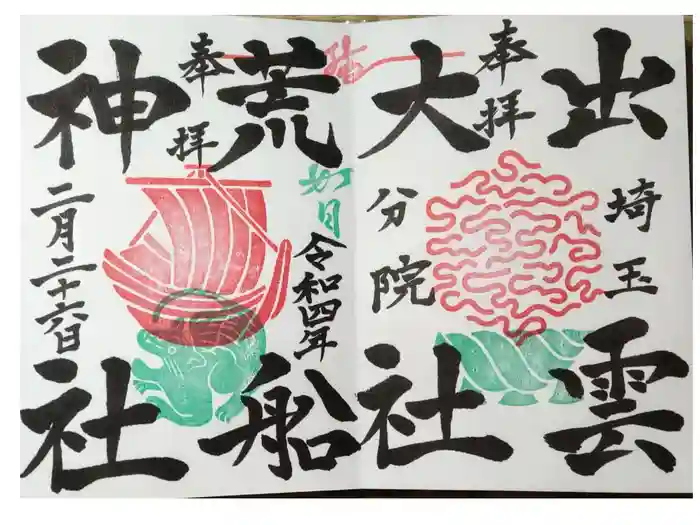 奉拝
出雲
大社
埼玉
分院
奉拝
荒船
神社
如月
令和四年
二月二十六日